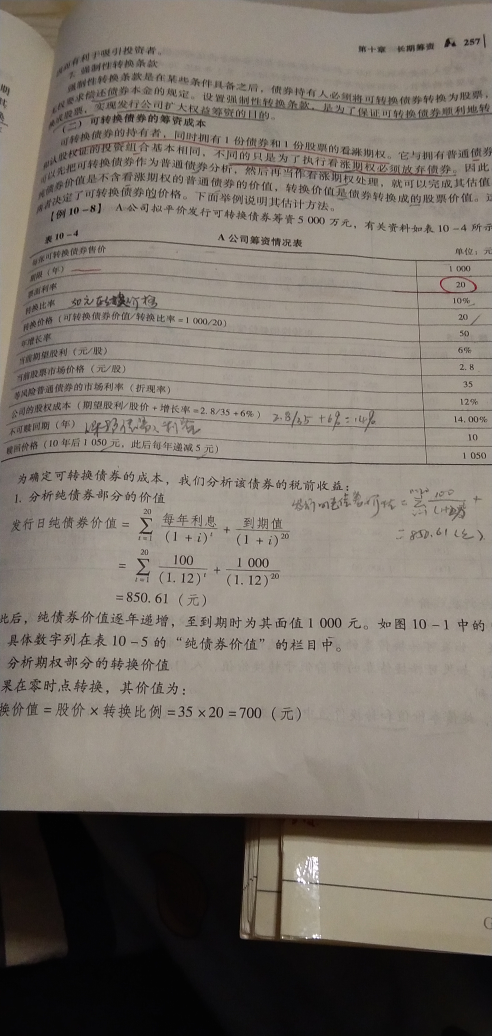 第十章 长期筹资 257
有利于吸引投资者。
7. 强制性转换条款
强制性转换条款是在某些条件具备之后，债券持有人必须将可转换债券转换为股票，
权要求偿还债券本金的规定。设置强制性转换条款，是为了保证可转换债券顺利地转
换成股票，实现发行公司扩大权益筹资的目的。
（二）可转换债券的筹资成本
可转换债券的持有者，同时拥有1份债券和1份股票的看涨期权。它与拥有普通债券
和认股权证的投资组合基本相同，不同的只是为了执行看涨期权必须放弃债券。因此
可以先把可转换债券作为普通债券分析，然后再当作看涨期权处理，就可以完成其估值
债券价值是不含看涨期权的普通债券的价值，转换价值是债券转换成的股票价值。这
两者决定了可转换债券的价格。下面举例说明其估计方法。
【例10-8】 A公司拟平价发行可转换债券筹资5 000万元，有关资料如表10-4所示
表10-4 A公司筹资情况表 单位：元
每张可转换债券售价 1 000
期限（年） 20
票面利率 10%
转换比率 20
转换价格（可转换债券价值/转换比率=1 000/20） 50
年增长率 6%
当前期望股利（元/股） 2.8
当前股票市场价格（元/股） 35
等风险普通债券的市场利率（折现率） 12%
公司的股权成本（期望股利/股价+增长率=2.8/35+6%） 2.8/35+6%=14% 14.00%
不可赎回期（年） 10
赎回价格（10年后1 050元，此后每年递减5元） 1 050
为确定可转换债券的成本，我们分析该债券的税前收益：
1. 分析纯债券部分的价值
发行日纯债券价值 = ∑(t=1→20) 每年利息/(1+i)^t + 到期值/(1+i)^20
= ∑(t=1→20) 100/(1.12)^t + 1 000/(1.12)^20
=850.61（元）
=850.61（元）
此后，纯债券价值逐年递增，至到期时为其面值1 000元。如图10-1中的
具体数字列在表10-5的“纯债券价值”的栏目中。
分析期权部分的转换价值
果在零时点转换，其价值为：
换价值=股价×转换比例=35×20=700（元）